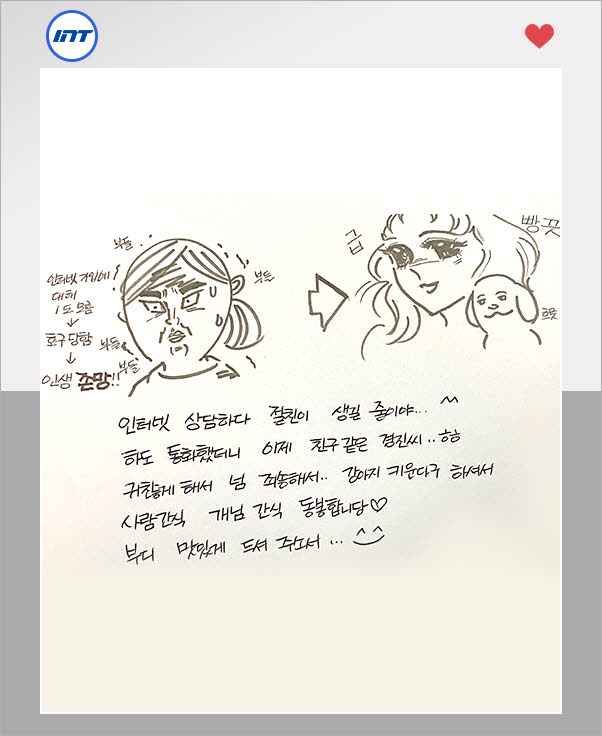 INT
부들
인터넷 가입에
대해
1도 모름
↓
호구당함
↓
인생 존망!!
부들
부들
부들
급
빵끗
흐뭇
인터넷 상담하다 절친이 생길 줄이야... ^^
하도 통화했더니 이제 친구같은 경진씨..ㅎㅎ
귀찮게 해서 넘 죄송해서.. 강아지 키운다구 하셔서
사람간식 개님 간식 동봉합니당♡
부디 맛있게 드셔 주소서... ^^